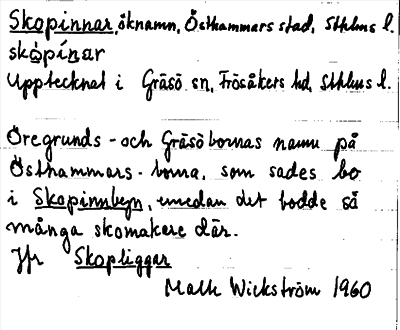 Skopinnar, öknamn, Östhammars stad, Sthlms l.
skòpínar
Upptecknat i Gräsö sn, Frösåkers hd, Sthlms l.
Öregrunds- och Gräsöbornas namn på
Östhammars-borna, som sades bo
i Skopinnbyn, emedan det bodde så
många skomakare där.
Jfr Skopliggar
Malte Wickström 1960